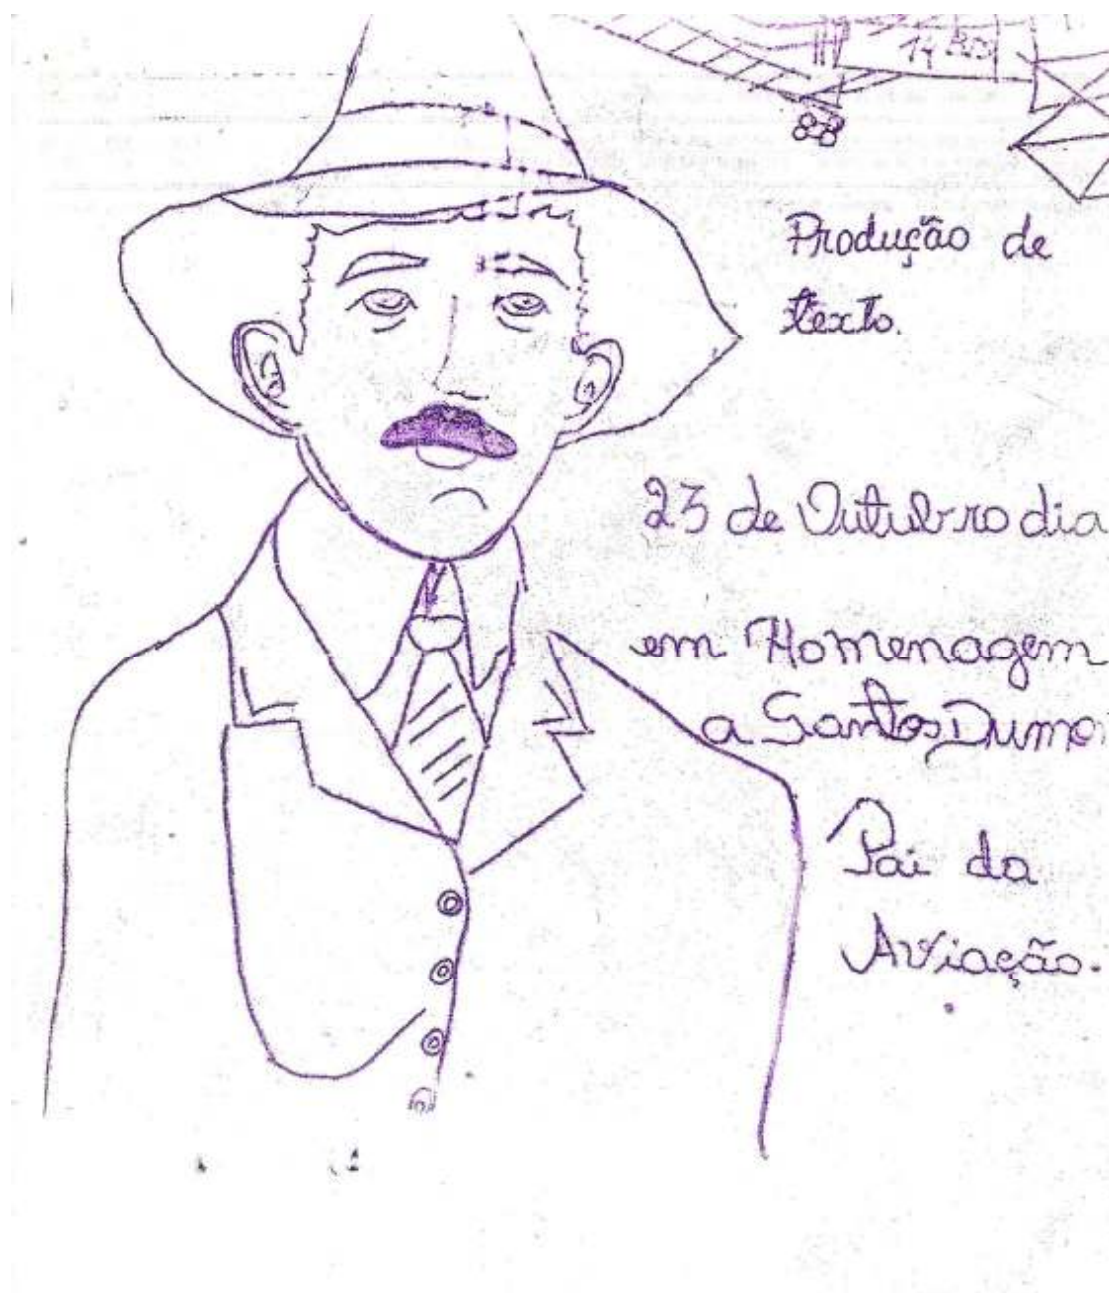 14 Bis
Produção de
texto.
23 de Outubro dia
em Homenagem
a Santos Dumo
Pai da
Aviação.